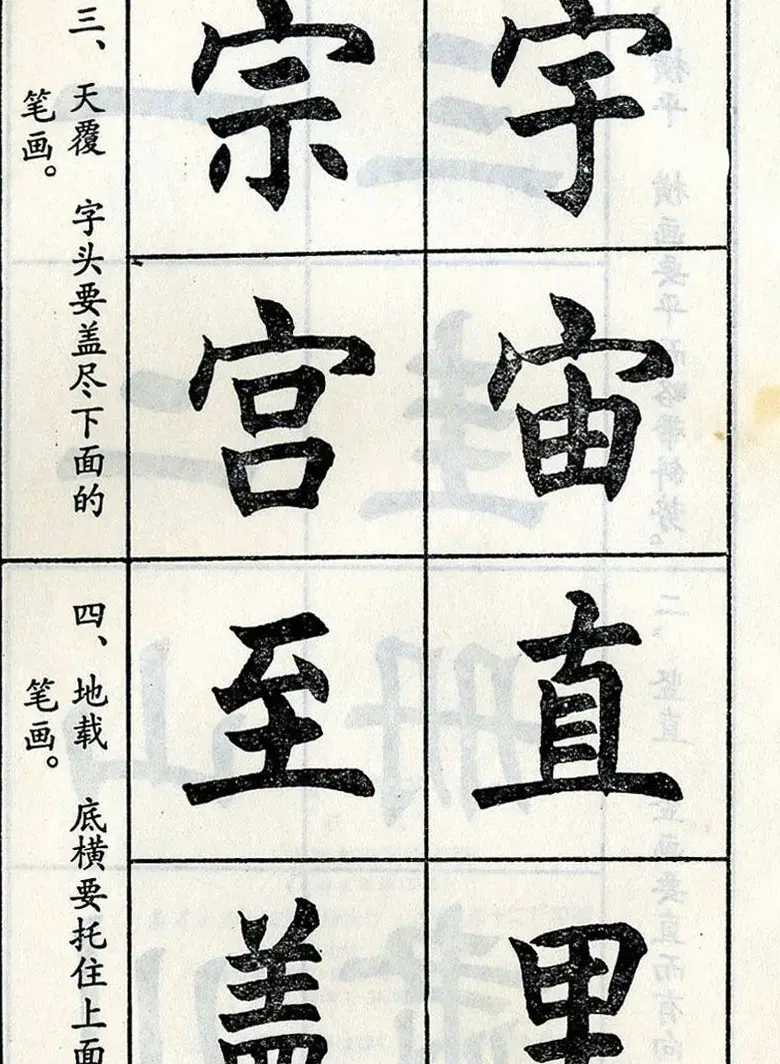 宇
宙
宗
宫
三、天覆 字头要盖尽下面的
笔画。
直
里
至
盖
四、地载 底横要托住上面
笔画。